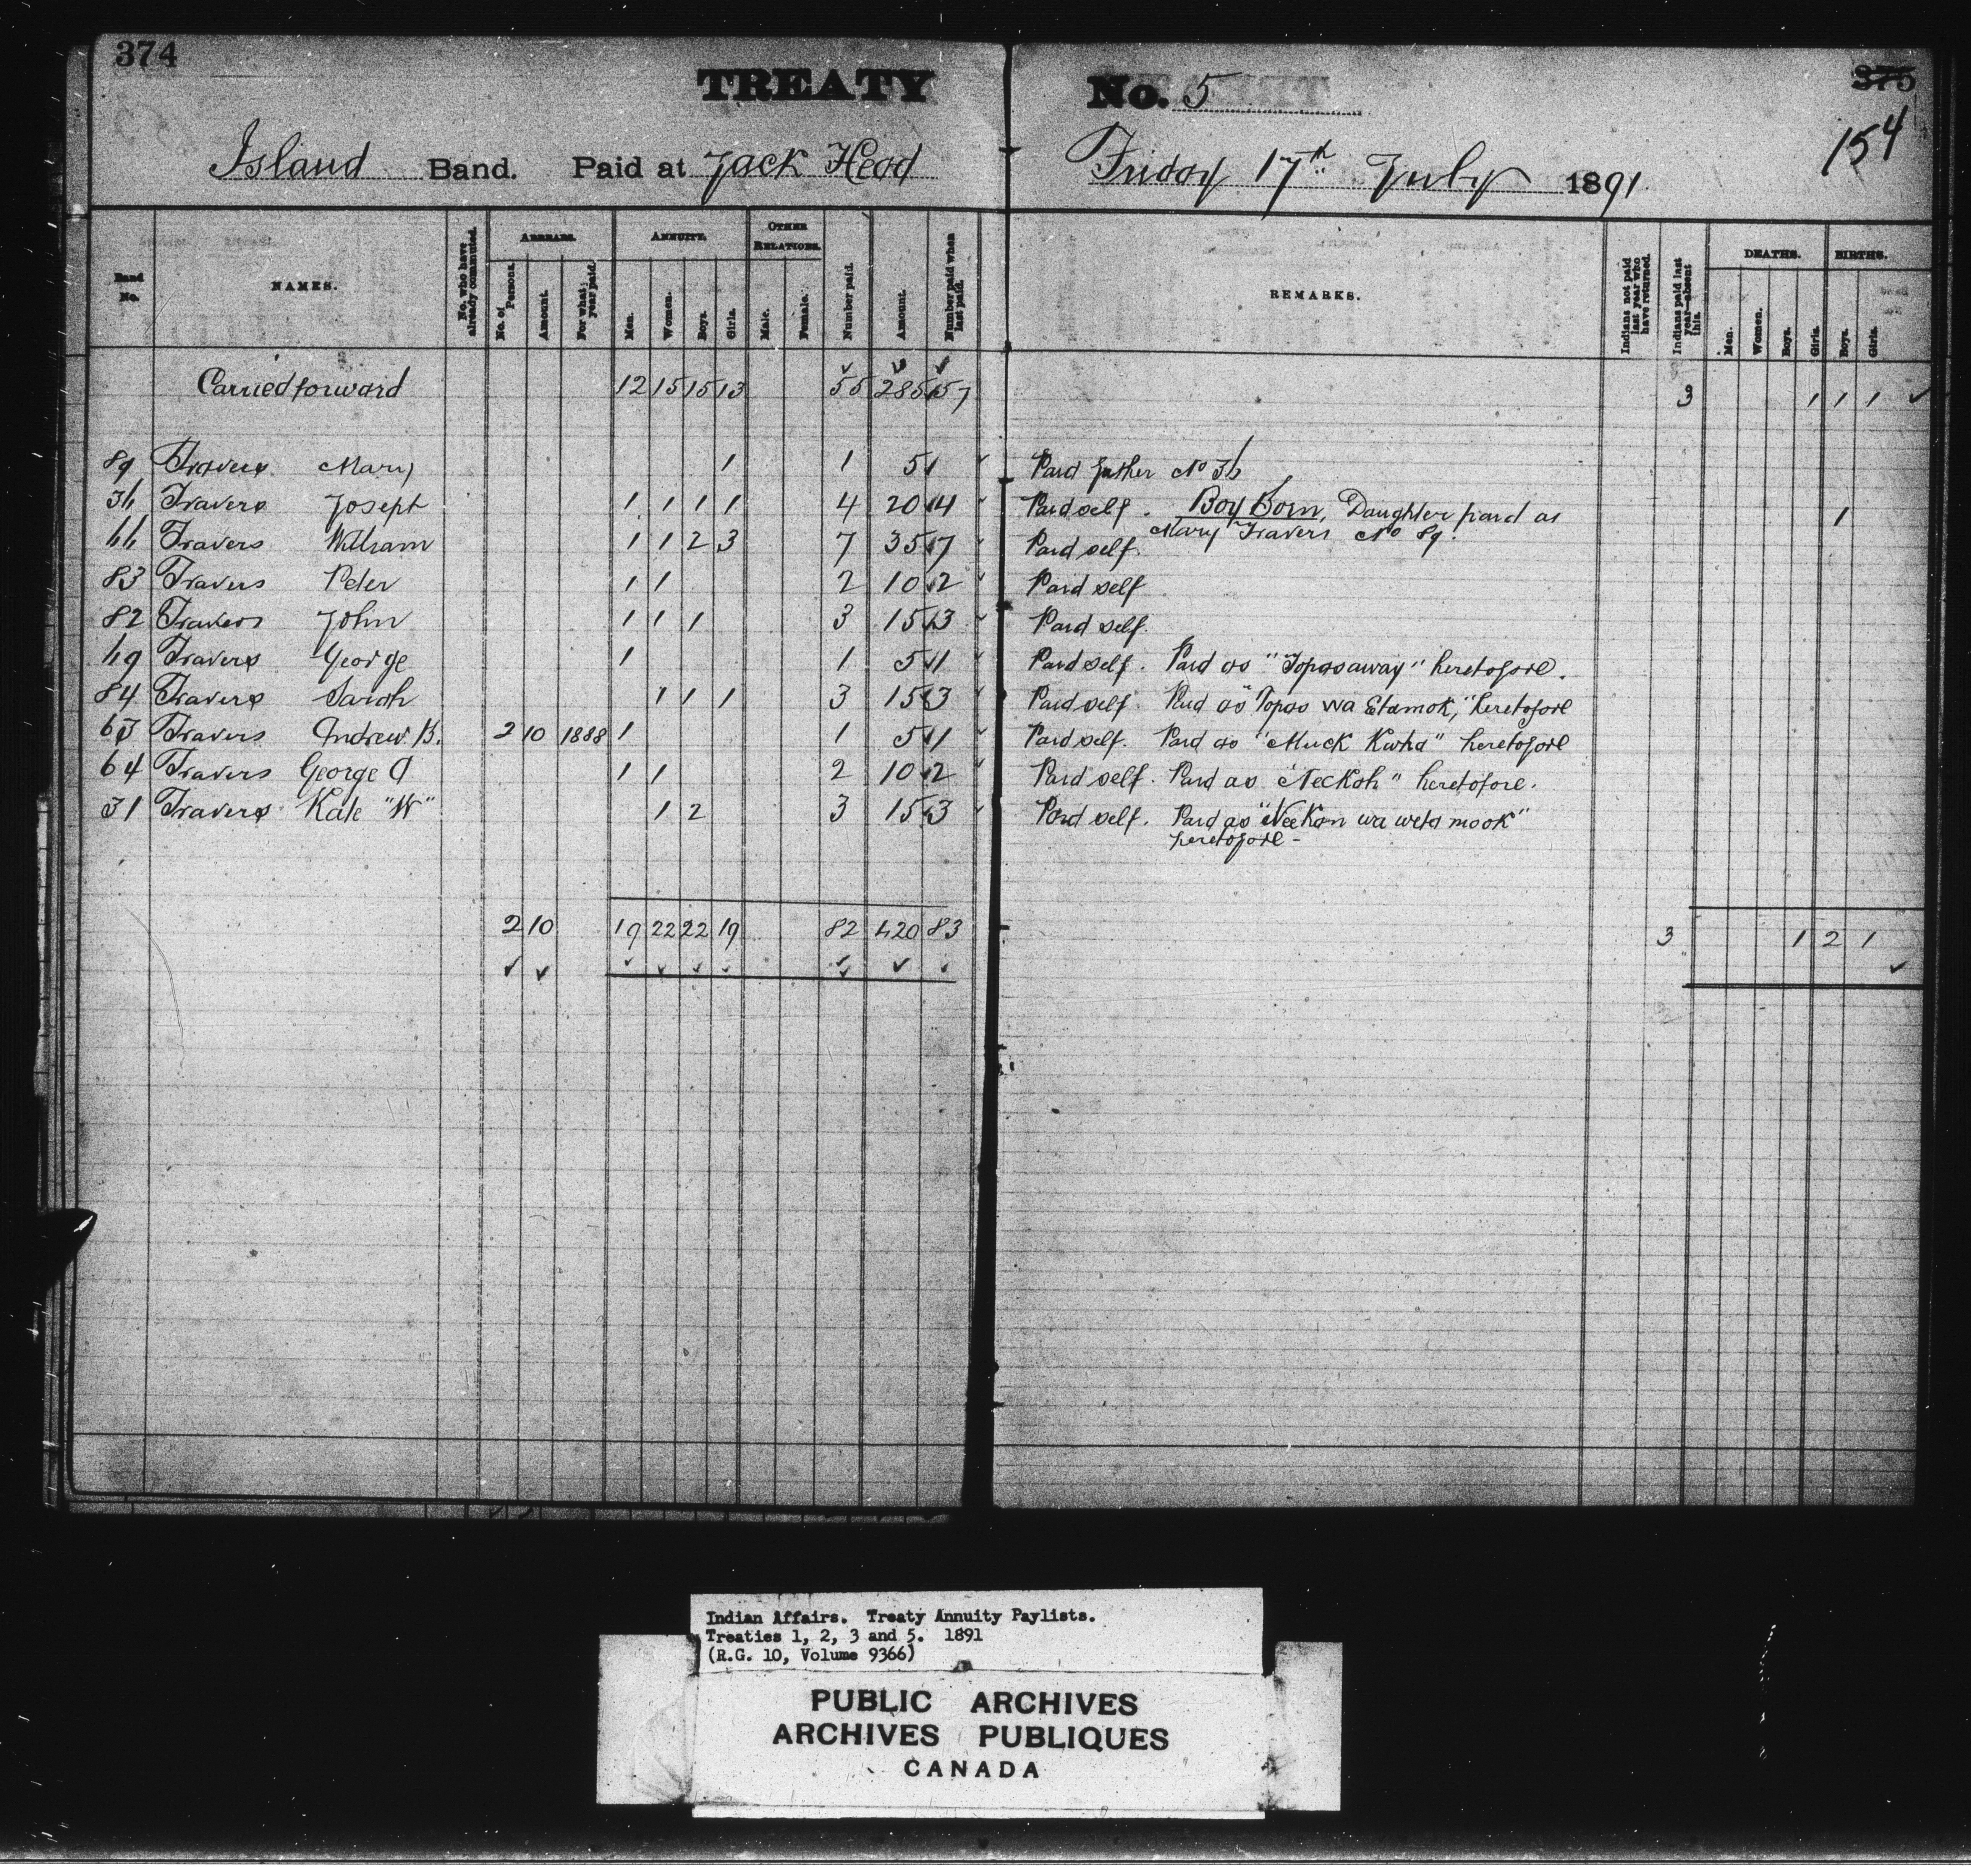 374
TREATY No. 5
375
154
Island Band. Paid at Jack Head Friday 17th July 1891
Band No. NAMES. No. who have already commuted. ARREARS. No. of Persons. Amount. For what year paid. ANNUITY. Men. Women. Boys. Girls. OTHER RELATIONS. Male. Female. Number paid. Amount. Number paid when last paid. REMARKS. Indians not paid last year who have returned. Indians paid last year—absent this. DEATHS. Men. Women. Boys. Girls. BIRTHS. Boys. Girls.
Carried forward 12 15 15 13 55 285 57 3 1 1 1
89 Travers Mary 1 1 5 1 Paid father No 36
36 Travers Joseph 1 1 1 1 4 20 4 Paid self. Boy Born, Daughter paid as 1
Mary Travers No 89.
66 Travers William 1 1 2 3 7 35 7 Paid self
83 Travers Peter 1 1 2 10 2 Paid self
82 Travers John 1 1 1 3 15 3 Paid self.
69 Travers George 1 1 5 1 Paid self. Paid as "Topasaway" heretofore.
84 Travers Sarah 1 1 1 3 15 3 Paid self. Paid as "Topas wa Etamok," heretofore
63 Travers Andrew B. 2 10 1888 1 1 5 1 Paid self. Paid as "Muck Kwha" heretofore
64 Travers George A 1 1 2 10 2 Paid self. Paid as "Neckoh" heretofore.
31 Travers Kate "W" 1 2 3 15 3 Paid self. Paid as "NeeKan wa weta mook"
heretofore -
2 10 19 22 22 19 82 420 83 3 1 2 1
Indian Affairs. Treaty Annuity Paylists.
Treaties 1, 2, 3 and 5. 1891
(R.G. 10, Volume 9366)
PUBLIC ARCHIVES
ARCHIVES PUBLIQUES
CANADA